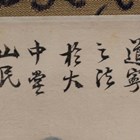 道寧
之法
於大
中堂
山民